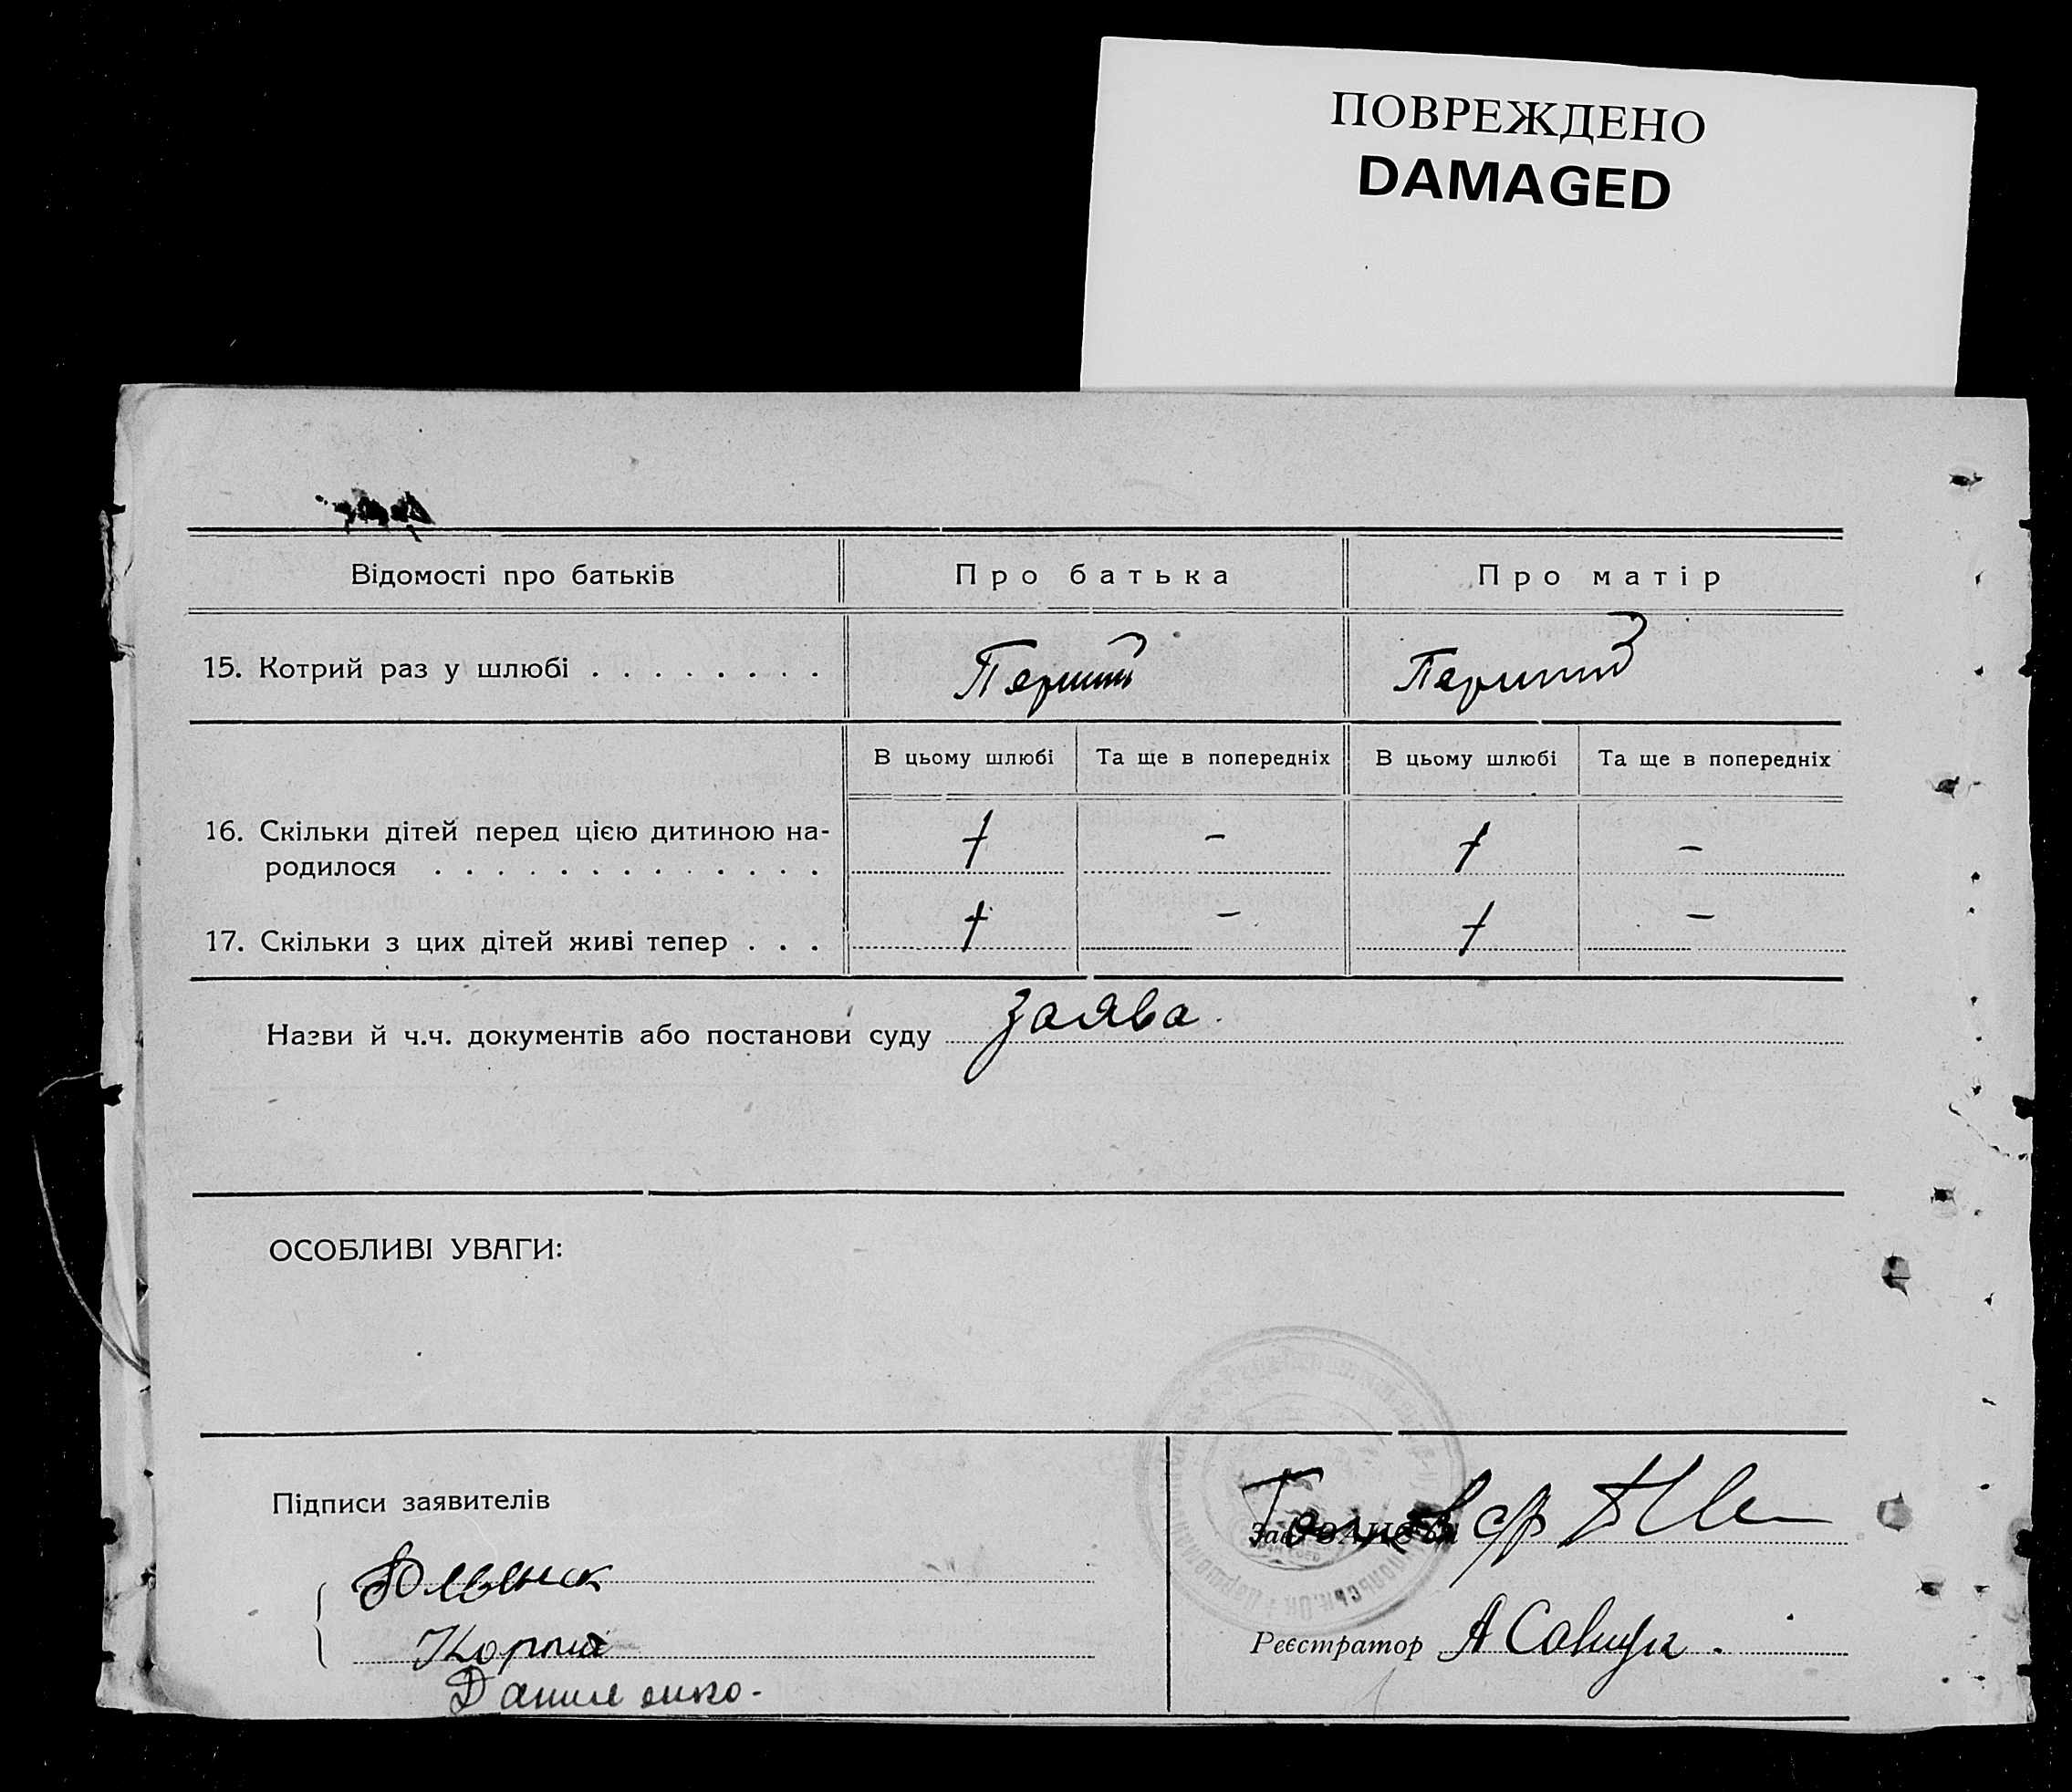 ПОВРЕЖДЕНО
DAMAGED
Відомості про батьків Про батька Про матір
15. Котрий раз у шлюбі . . . . . . . . Перший Перший
В цьому шлюбі Та ще в попередніх В цьому шлюбі Та ще в попередніх
16. Скільки дітей перед цією дитиною на-
родилося . . . . . . . . . . . . . . 1 - 1 -
17. Скільки з цих дітей живі тепер . . . 1 - 1 -
Назви й ч.ч. документів або постанови суду заява.
ОСОБЛИВІ УВАГИ:
Підписи заявителів
Корній
Даниленко.
Реєстратор А